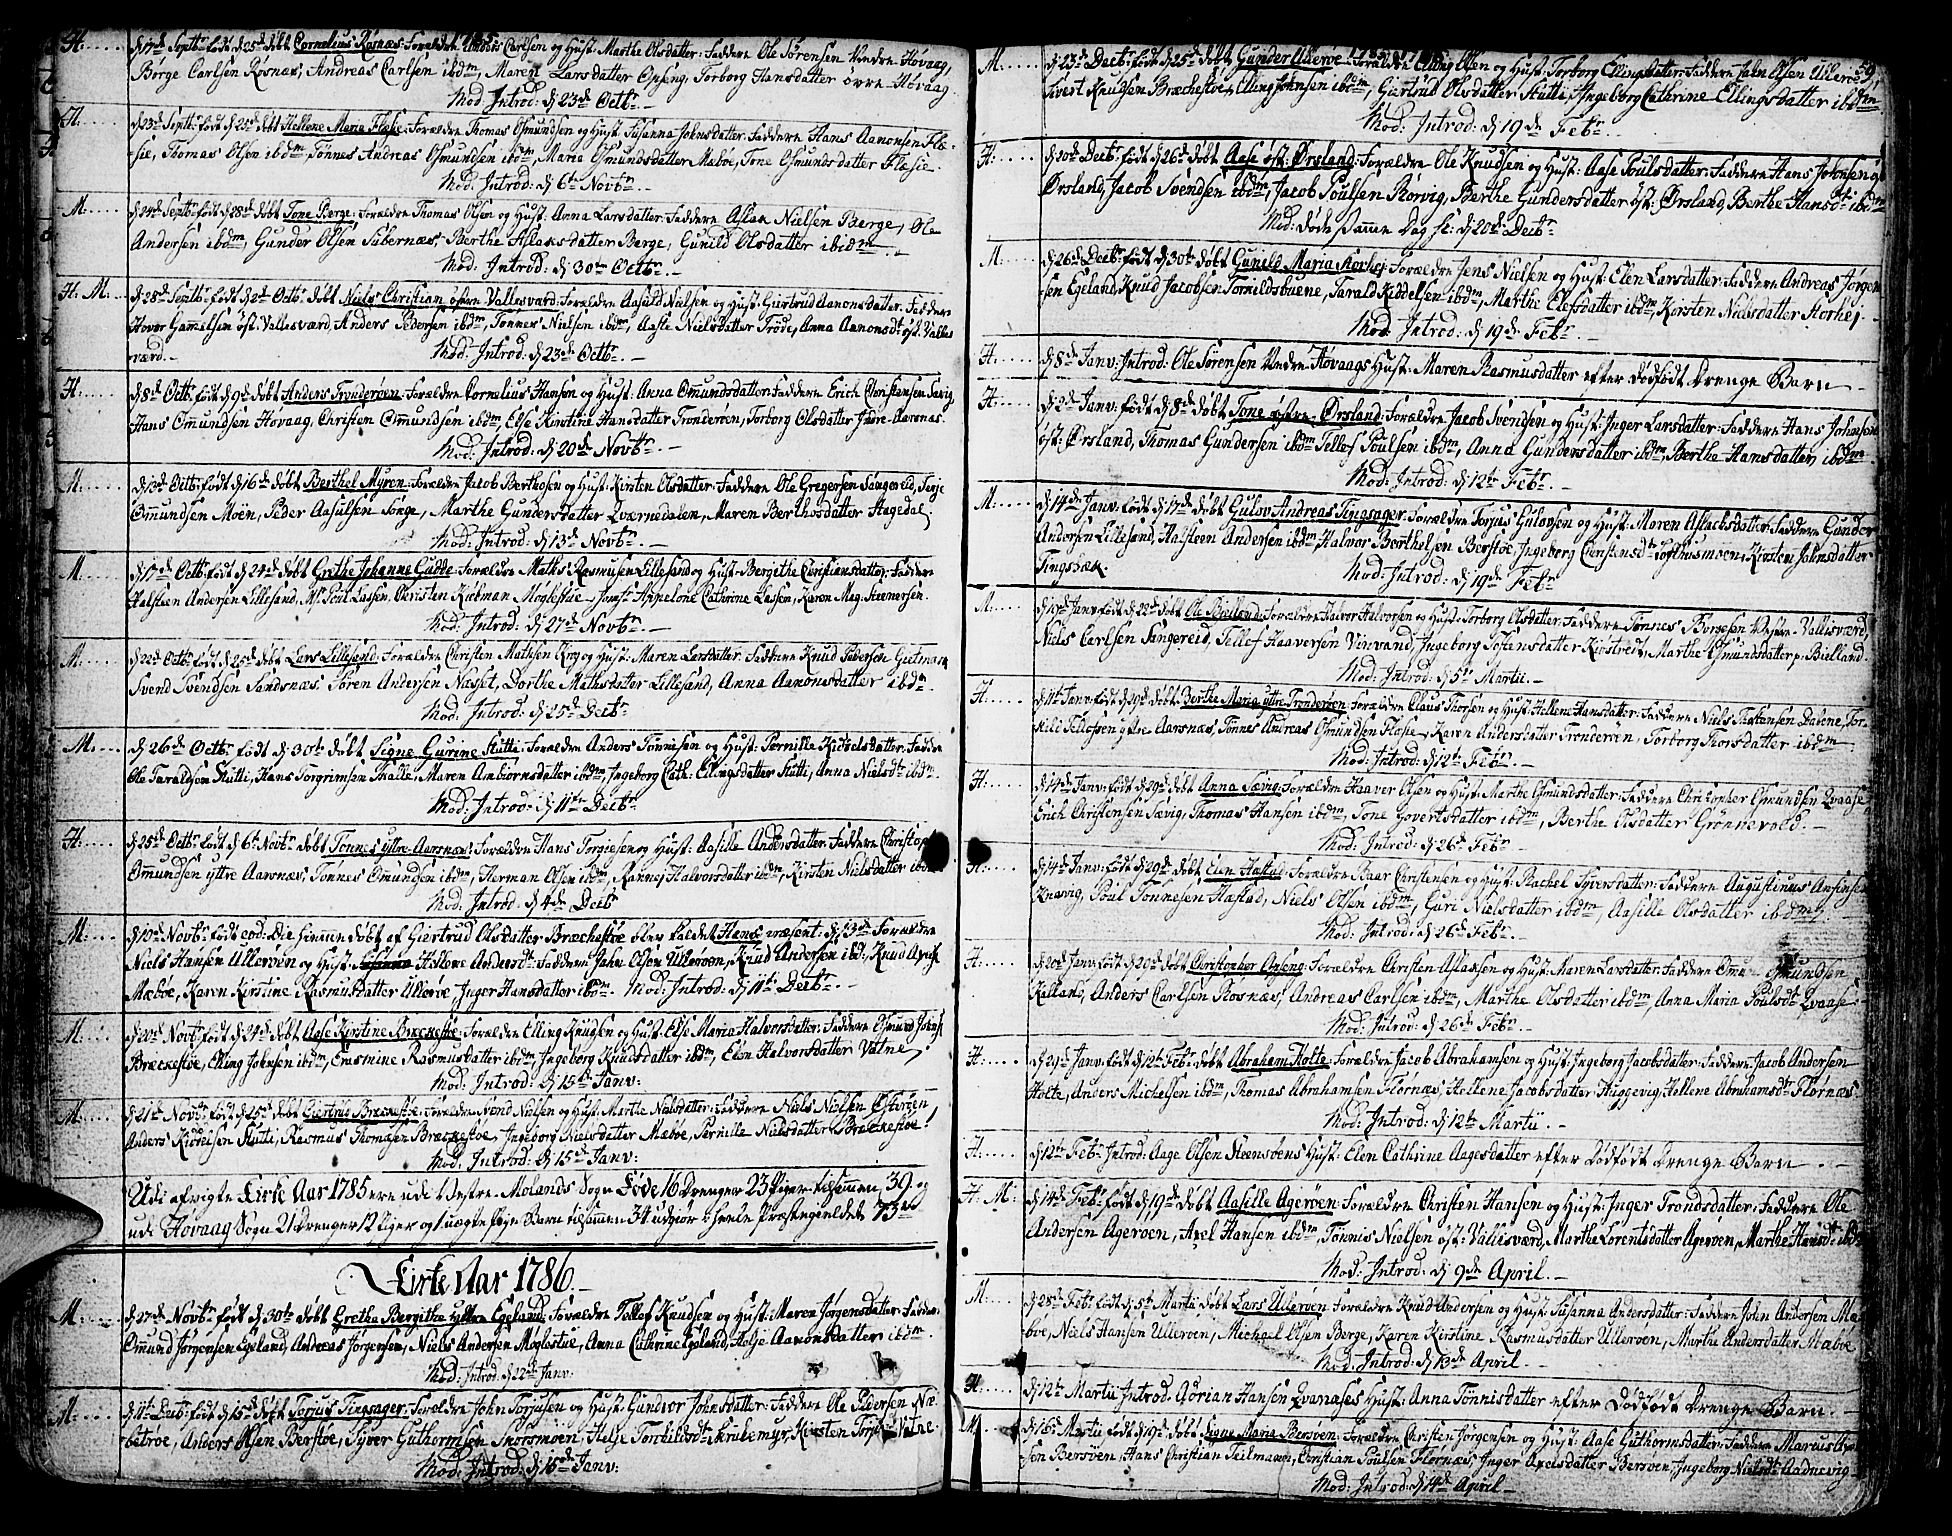 H. d 17de Septbr født d 25de døbt Cornelius Rosnæs: Forældre Anders Carlsen og Hust: Marthe Olsdatter: Faddere Ole Sørensen Vendre Hovaag,
Børge Carlsen Røsnæs, Andreas Carlsen ibdm, Maren Larsdatter Opseng, Torborg Hansdatter øvre Hovaag.
Mod: Introd: d 23de Octbr.
H. d 23de Septbr født d 25de døbt Hellene Maria Flæsie: Forældre Thomas Osmundsen og Hust: Susanna Johnsdatter: Faddere Hans Aanonsen Flæ-
-sie, Thomas Olsen ibdm, Tønnes Andreas Osmundsen ibdm, Maria Osmundsdatter Mæbøe, Tone Osmundsdatter Flæsie.
Mod: Introd: d 6te Novbr.
M. d 24de Septbr født d 28de døbt Tone Berge: Forældre Thomas Olsen og Hust: Anna Larsdatter: Faddere Aslak Nielsen Berge, Ole
Andersen ibdm, Gunder Olsen Tabernæs, Berthe Aslaksdatter Berge, Gunild Olsdatter ibdm.
Mod: Introd: d 30te Octbr.
H. M. d 28de Septbr født d 2de Octb: døbt Niels Christian østre Vallesværd: Forældre Aasuld Nielsen og Hust: Giertrud Aanonsdatter: Faddere
Hover Gamelsen øst: Vallesværd, Anders Pedersen ibdm, Tønnes Nielsen ibdm, Aasle Nielsdatter Trøde, Anna Aanonsdt øst: Valles
værd. Mod: Introd: d 23de Octbr.
H. d 8de Octb: født d 9de døbt Anders Tronderøen: Forældre Cornelius Hansen og Hust: Anna Omundsdatter: Faddere Erich Christensen Sævig,
Hans Omundsen Hovaag, Christen Omundsen ibdm, Else Kirstine Hansdatter Tronderøen, Torborg Olsdatter Indre Aarsnæs.
Mod: Introd: d 20de Novbr.
M. d 13de Octb: født d 16de døbt Berthel Myren: Forældre Jacob Berthosen og Hust: Kirsten Olsdatter: Faddere Ole Gregersen Sangereid, Tarje
Omundsen Moen, Peder Aasulsen Songe, Marthe Gundersdatter Qværnedalen, Maren Berthosdatter Hagedal.
Mod: Introd: d 13de Novbr.
M. d 17de Octb: født d 24de døbt Grethe Johanne Gudde: Forældre Mathis Rasmusen Lillesand og Hust: Bergithe Christiansdatter: Faddere
Halsteen Andersen Lillesand, Mr: Poul Lassen, Christen Richman Moglestue, Jomf: Appelone Cathrine Lassen, Karen Mag: Steenersen.
Mod: Introd: d 27de Novbr.
M. d 22de Octb: født d 25de døbt Lars Lillesand: Forældre Christen Mathisen Krog og Hust: Maren Larsdatter: Faddere Knud Pedersen Gietmark,
Svend Svendsen Sandsnæs, Søren Andersen Næsset, Dorthe Mathisdatter Lillesand, Anna Aanonsdatter ibdm.
Mod: Introd: d 25de Decbr.
M. d 26de Octbr født d 30te døbt Signe Gurine Stutte: Forældre Anders Tønnisen og Hust: Pernilla Kidtelsdatter: Fadde
Ole Taraldsøn Stutti, Hans Torgrimsen Skalle, Maren Ambiørnsdatter ibdm, Ingeborg Cath: Ellingsdatter Stutti, Anna Nielsdt ibdm.
Mod: Introd: d 11te Decbr.
H. d 25de Octbr født d 6te Novbr døbt Tønnes ystre Aarsnæs: Forældre Hans Torgiesen og Hust: Aasille Andersdatter: Faddere Christoph
Omundsen yttre Aarsnæs, Tønnes Omundsen ibdm, Herman Olsen ibdm, Rannej Halvorsdatter ibdm, Kirsten Nielsdatter ibdm
Mod: Introd: d 4de Decbr.
M. d 10de Novbr født eod: Die hiemme døbt af Giertrud Olsdatter Bræchestøe blev kaldet Hans præsent: d 13de Forældre
Niels Hansen Ullerøen og Hust: Hellene Andersdt: Faddere John Olsen Ullerøen, Knud Andersen ibd: Knud
Mæbøe, Karen Kirstine Rasmusdatter Ullerøe, Inger Hansdatter ibdm. Mod: Introd: d 11te Decbr.
M. d 20de Novbr født d 24de døbt Aase Kirstine Breckestøe: Forældre Elling Knudsen og Hust: Else Maria Halvorsdatter: Faddere Osmund Johns
Breckestøe, Elling Johnsen ibdm, Erasmine Rasmusdatter ibdm Ingeborg Knudsdatter ibdm, Elen Halvorsdatter Vatne,
Mod: Introd: d 15de Janv:
M. d 21de Novbr født d 25de døbt Giertrud Breckestøe: Forældre Svend Nielsen og Hust: Marthe Nielsdatter: Faddere Niels Nielsen Østerøen,
Anders Kidtelsen Stutti, Rasmus Thomasen Breckestøe, Ingeborg Nielsdatter Mæbøe, Pernille Nielsdatter Breckestøe
Mod: Introd: d 15de Janv:
Udi afvigte Kirke Aar 1785 ere udi Vestre-Molands Sogn Føde 16 Drenger 23 Piger tilsamen 39 og
udi Hovaag Sogn 21 drenger 12 Piger og 1 uægte Pige Barn tilsammen 34 udgiør i heele Præstegieldet 73de
Kirke Aar 1786.
M. d 27de Novbr født d 30te døbt Grethe Bergithe yttre Egeland: Forældre Tellef Knudsen og Hust: Maren Jørgensdatter: Faddere
Omund Jørgensen Egeland, Andreas Jørgensen, Niels Andersen Moglestue, Anna Cathrine Egeland, Helje Aanonsdatter ibdm.
Mod: Introd: d 22de Janv:
M. d 11te Decb: født d 15de døbt Torjus Tingsager: Forældre John Torjusen og Hust: Gundvor Johnsdatter: Faddere Ole Pedersen Ni-
betroe, Anders Olsen Berstøe, Syver Guthormsen Skorsmoen, Helje Torkildsdt Skrubemyr, Kirsten Vatne
Mod: Introd: d 15de Janv:
59.
M. d 23de Decbr født d 25de døbt Gunder Ullerøe: Forældre Elling Olsen og Hust: Torborg Ellingsdatter: Faddere John Olsen Ullerøe
Sivert Knudsen Bræchestøe, Elling Johnsen ibdm, Giertrud Olsdatter Stutti, Ingeborg Cathrine Ellingsdatter ibdm
Mod: Introd: d 19de Febr.
H. d 20de Decbr født d 26de døbt Aase øst: Ørsland: Forældre Ole Knudsen og Hust: Aase Poulsdatter: Faddere Hans Johnsen øst
Ørsland, Jacob Svendsen ibdm, Jacob Poulsen Rørvig, Berthe Gundersdatter øst: Ørsland, Berthe Hansdt: ibdm
Mod: døde samme Dag sc: d 20de Decbr
M. d 26de Decbr født d 30te døbt Gunild Maria Storhej: Forældre Jens Nielsen og Hust: Elen Larsdatter: Faddere Andreas Jørgen
sen Egeland, Knud Jacobsen Tornildsbuene, Tarald Kiddelsen ibdm, Marthe Elefsdatter ibdm, Kirsten Nielsdatter Storhej.
Mod: Introd: d 19de Febr.
H. d 8de Janv: Introd: Ole Sørensen Vendre Hovaags Hust: Maren Rasmusdatter efter dødfødt Drenge Barn
H. d 2de Janv: født d 8de døbt Tone østre Ørsland: Forældre Jacob Svendsen og Hust: Inger Larsdatter: Faddere Hans Johnsen
øst: Ørsland, Thomas Gundersen ibdm Tellef Poulsen ibdm, Anna Gundersdatter ibdm, Berthe Hansdatter ibdm.
Mod: Introd: d 12te Febr.
M. d 14de Janv: født d 17de døbt Gulov Andreas Tingsager: Forældre Torjus Gulovsen og Hust: Maren Aslachsdatter: Faddere Gunder
Andersen Lillesand, Halsteen Andersen ibdm Halvor Berthelsen Berstøe, Ingeborg Christensdt Tofthusmoen, Kirsten Johnsdatter
Tingsbæk. Mod: Introd: d 19de Febr
M. d 19de Janv: født d 22de døbt Ole Bielland: Forældre Halvor Halvorsen og Hust: Torborg Olsdatter: Faddere Tønnes Børgesen Vestre Vallesværd,
Niels Carlsen Sangereid, Tellef Haaversen Vinvand, Ingeborg Tostensdatter Kirstrød, Marthe Osmundsdatter Bielland.
Mod: Introd: d 5te Martii.
H. d 11te Janv: født d 19de døbt Berthe Maria yttre Tronderøen: Forældre Claus Thorsen og Hust: Hellene Hansdatter: Faddere Niels Thostensen Dalene, Tor-
kild Tellofsen ystre Aarsnæs, Tønnes Andreas Osmundsen Flæsie, Karen Andersdatter Tronderøen, Torborg Thorsdatter ibdm
Mod: Introd: d 12te Febr.
H. d 14de Janv: født d 29de døbt Anna Sævig: Forældre Haaver Olsen og Hust: Marthe Osmundsdatter: Faddere Christopher Osmundsen Qvaase
Erich Christensen Sævig, Thomas Hansen ibdm, Tone Govertsdatter ibdm, Berthe Olsdatter Grønnevold.
Mod: Introd: d 26de Febr.
H. d 14de Janv: født d 29de døbt Elen Hæstad: Forældre Baar Christensen og Hust: Rachel Syversdatter: Faddere Augustinus Ansteinsen
Knævig, Poul Tønnesen Hæstad, Niels Olsen ibdm, Guri Nielsdatter ibdm, Aasille Olsdatter ibdm
Mod: Introd: d 26de Febr.
H. d 20de Janv: født d 29de døbt Christopher Opseng: Forældre Christen Aslaksen og Hust: Maren Larsdatter: Faddere Osmundsen
Kalland, Anders Carlsen Rosnæs, Andreas Carlsen ibdm, Marthe Olsdatter ibdm, Anna Maria Poulsdt Qvaase
Mod: Introd: d 26de Febr.
H. d 29de Janv: født d 12te Febr døbt Abraham Holte: Forældre Jacob Abrahamsen og Hust: Ingeborg Jacobsdatter: Faddere Jacob Andersen
Holte, Anders Michelsen ibdm, Thomas Abrahamsen Flørnæs, Hellene Jacobsdatter Huggevig, Hellene Abrahamsdt Flørnæs
Mod: Introd: d 12te Martii.
H. d 12te Feb: Introd: Aage Olsen Steensøens Hust: Elen Cathrine Aagesdatter efter dødfødt Drenge Barn.
H. M: d 14de Feb: født d 19de døbt Aasille Agerøen: Forældre Christen Hansen og Hust: Inger Trondsdatter: Faddere Ole
Andersen Agerøen, Axel Hansen ibdm, Tønnis Nielsen øst: Vallesværd, Marthe Lorentsdatter Agerøen, Marthe Hansdt: ibdm
Mod: Introd: d 9de April.
M. d 28de Feb: født d 5te Martii døbt Lars Ullerøen: Forældre Knud Andersen og Hust: Susanna Andersdatter: Faddere John Andersen Mæ-
bøe, Niels Hansen Ullerøen, Michael Olsen Berge, Karen Kirstine Rasmusdatter Ullerøen, Marthe Andersdatter Mæbøe
Mod: Introd: d 13de April.
H. d 12te Martii Introd: Adrian Hansen Qvanæses Hust: Anna Tønnisdatter efter Dødfødt Drenge Barn.
M. d 16de Martii født d 19de døbt Signe Maria Bersøen: Forældre Christen Jørgensen og Hust: Aase Guthormsdatter: Faddere Marcus
sen Bersøen, Hans Christian Teilmann, Christian Poulsen Flornæs, Inger Axelsdatter Bersøen, Ingeborg Nielsdt: Aadnevig
Mod: Introd: d 14de April